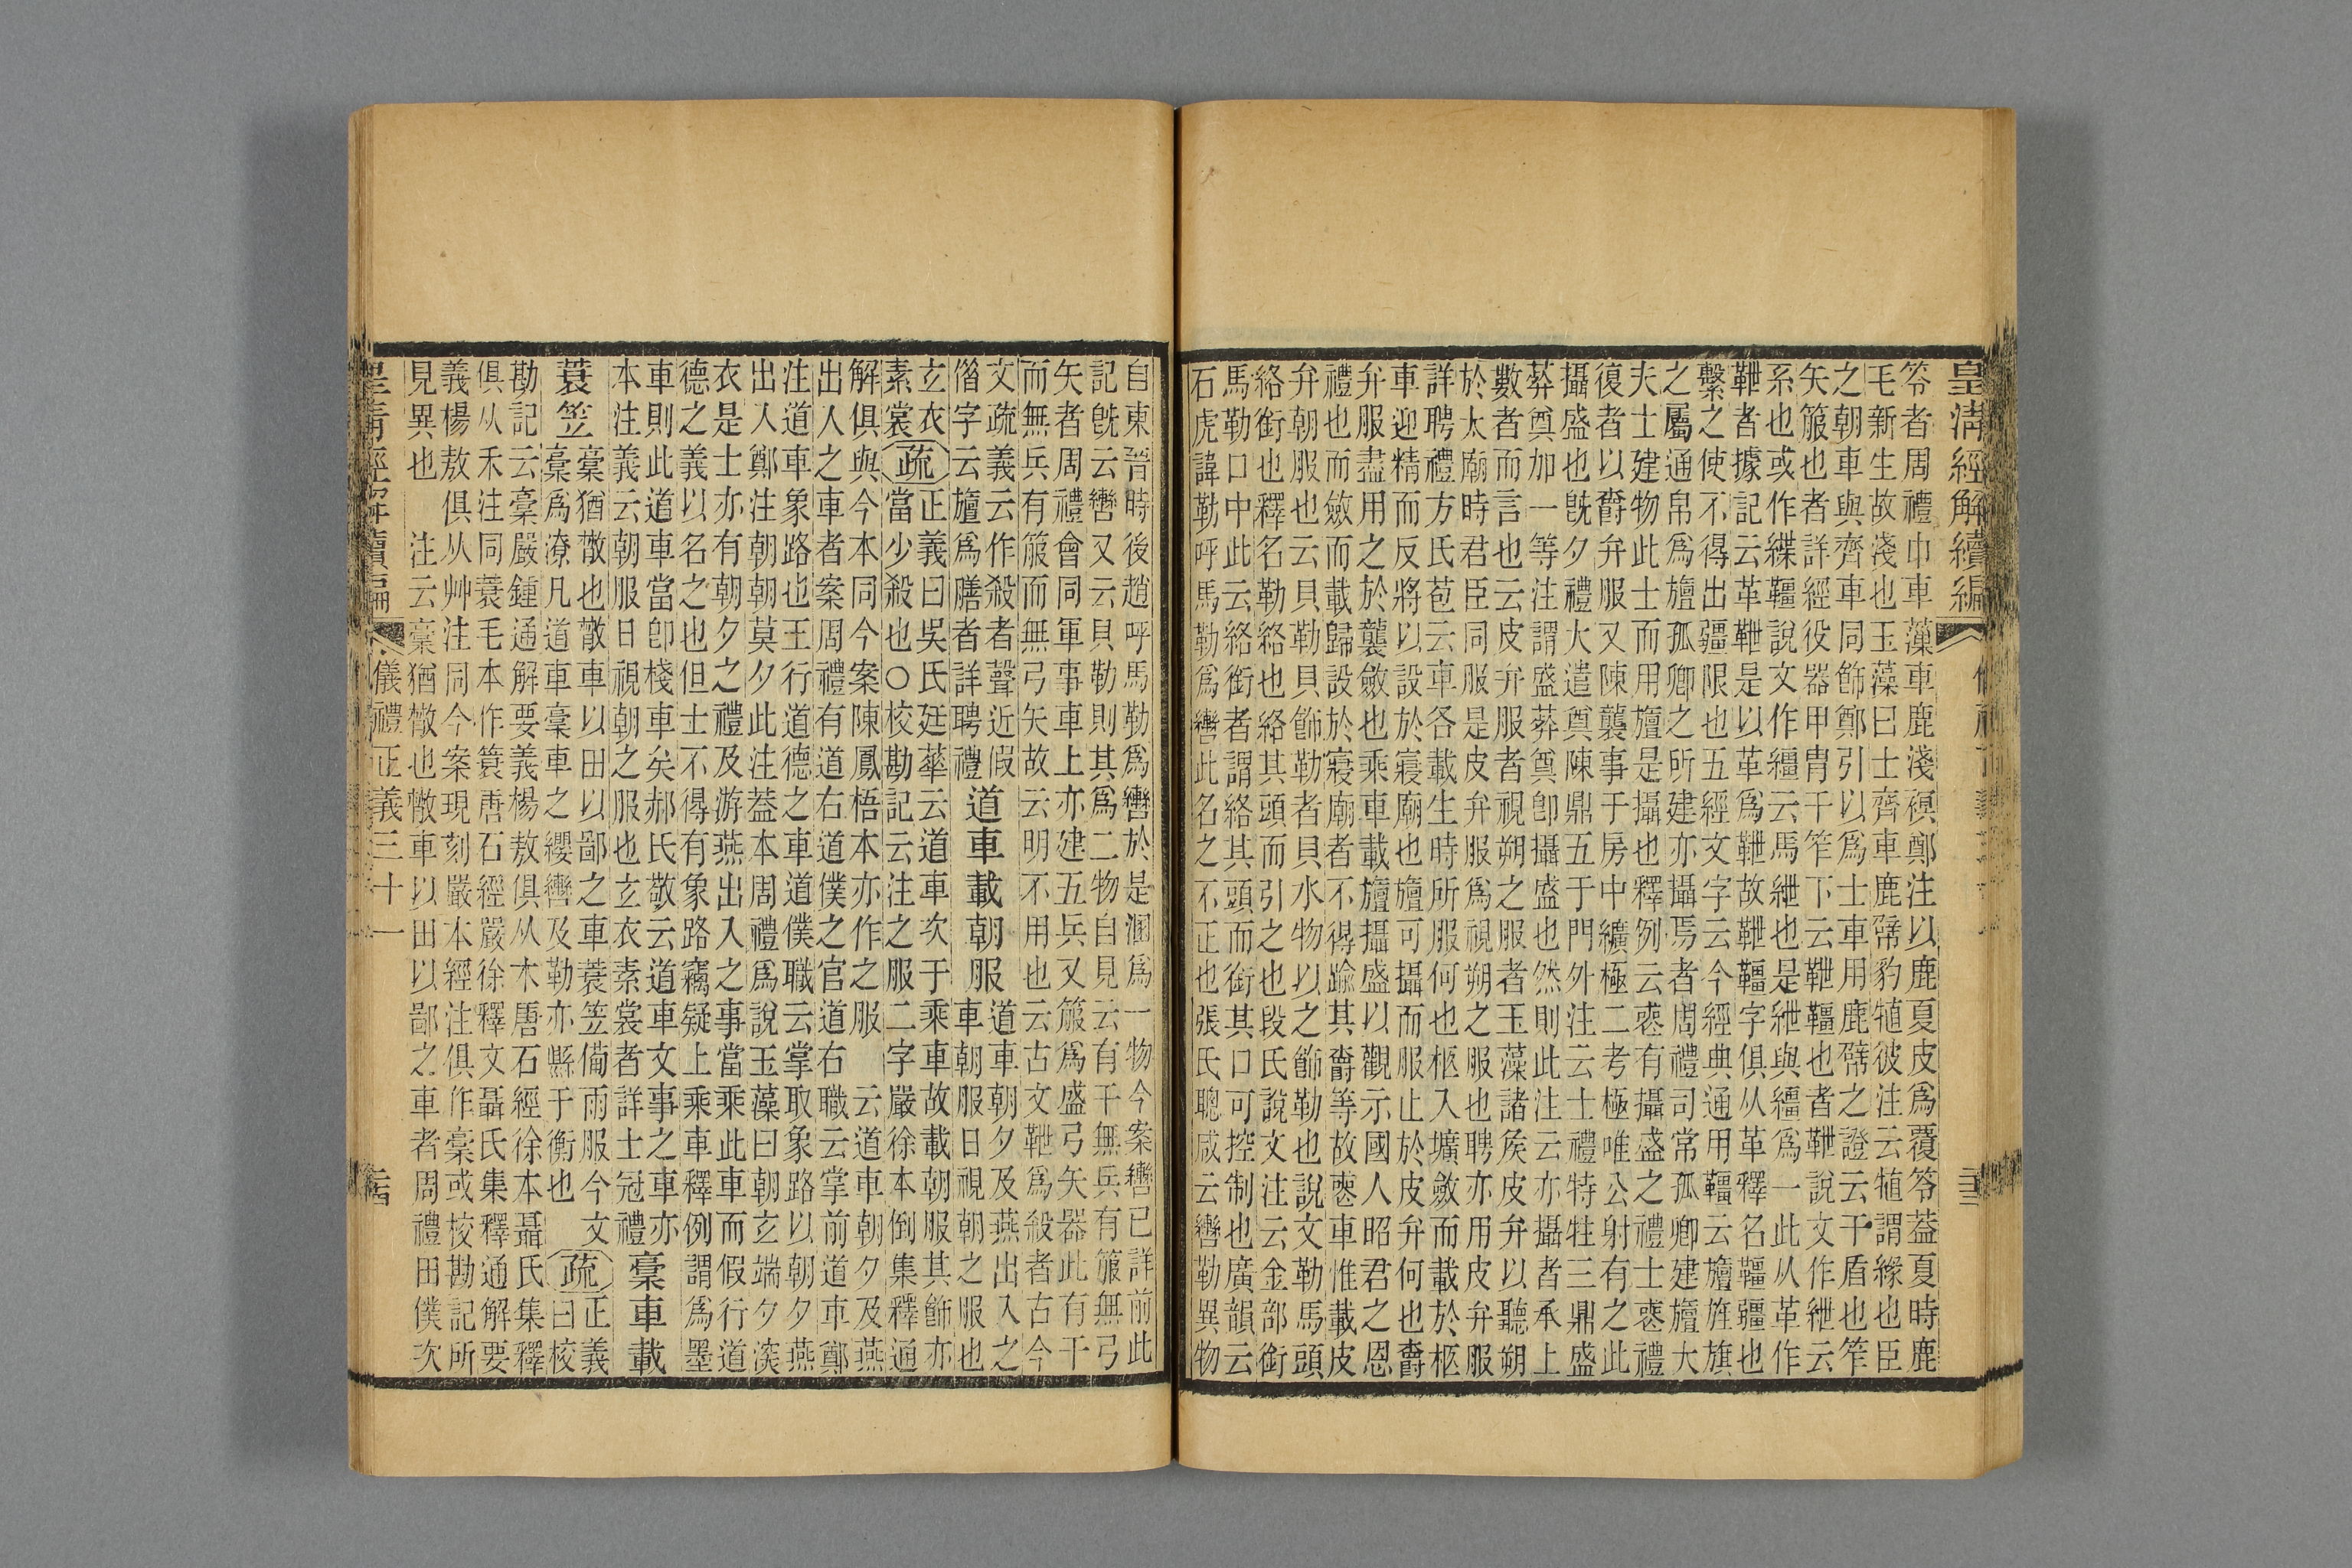 皇清經解續編
笭者周禮巾車藻車鹿淺𧜀鄭注以鹿夏皮爲覆笭葢夏時鹿
毛新生故淺也玉藻曰士齊車鹿幦豹犆彼注云犆謂緣也臣
之朝車與齊車同飾鄭引以爲士車用鹿幦之證云干盾也笮
矢箙也者詳經役器甲胄干笮下云靾韁也者靾說文作紲云
系也或作緤韁說文作繮云馬紲也是紲與繮爲一此从革作
靾者據記云革靾是以革爲靾故靾韁字俱从革釋名韁疆也
繫之使不得出疆限也五經文字云今經典通用韁云旜旌旗
之屬通帛爲旜孤卿之所建亦攝焉者周禮司常孤卿建旜大
夫士建物此士而用旜是攝也釋例云䘮有攝盛之禮士䘮禮
復者以爵弁服又陳襲事于房中纊極二考極唯公射有之此
攝盛也旣夕禮大遣奠陳鼎五于門外注云士禮特牲三鼎盛
葬奠加一等注謂盛葬奠卽攝盛也然則此注云亦攝者承上
數者而言也云皮弁服者視朔之服者玉藻諸矦皮弁以聽朔
於太廟時君臣同服是皮弁服爲視朔之服也聘亦用皮弁服
詳聘禮方氏苞云車各載生時所服何也柩入壙斂而載於柩
車迎精而反將以設於寢廟也旜可攝而服止於皮弁何也爵
弁服盡用之於襲斂也乘車載旜攝盛以觀示國人昭君之恩
禮也而斂而載歸設於寢廟者不得踰其爵等故䘮車惟載皮
弁朝服也云貝勒貝飾勒者貝水物以之飾勒也說文勒馬頭
絡銜也釋名勒絡也絡其頭而引之也段氏說文注云金部銜
馬勒口中此云絡銜者謂絡其頭而銜其口可控制也廣韻云
石虎諱勒呼馬勒爲轡此名之不正也張氏聰咸云轡勒異物
二十三
自東晉時後趙呼馬勒爲轡於是溷爲一物今案轡已詳前此
記旣云轡又云貝勒則其爲二物自見云有干無兵有箙無弓
矢者周禮會同軍事車上亦建五兵又箙爲盛弓矢器此有干
而無兵有箙而無弓矢故云明不用也云古文靾爲殺者古今
文疏義云作殺者聲近假
偺字云旜爲膳者詳聘禮
道車載朝服
道車朝夕及燕出入之
車朝服日視朝之服也
玄衣
素裳
疏
正義曰吳氏廷華云道車次于乘車故載朝服其飾亦
當少殺也○校勘記云注之服二字嚴徐本倒集釋通
解俱與今本同今案陳鳳梧本亦作之服 云道車朝夕及燕
出入之車者案周禮有道右道僕之官道右 職云掌前道車鄭
注道車象路也王行道德之車道僕職云掌取象路以朝夕燕
出入鄭注朝朝莫夕此注葢本周禮爲說玉藻曰朝玄端夕深
衣是士亦有朝夕之禮及游燕出入之事當乘此車而假行道
德之義以名之也但士不得有象路竊疑上乘車釋例謂爲墨
車則此道車當卽棧車矣郝氏敬云道車文事之車亦
本注義云朝服日視朝之服也玄衣素裳者詳士冠禮
稾車載
蓑笠
稾猶散也散車以田以鄙之車蓑笠備雨服今文
稾爲潦凡道車稾車之纓轡及勒亦縣于衡也
疏
正義
曰校
勘記云稾嚴鍾通解要義楊敖俱从木唐石經徐本聶氏集釋
俱从禾注同蓑毛本作簑唐石經嚴徐釋文聶氏集釋通解要
義楊敖俱从艸注同今案現刻嚴本經注俱作稾或校勘記所
見異也 注云稾猶散也散車以田以鄙之車者周禮田僕次
皇清經解續編
儀禮正義三十一
二十四